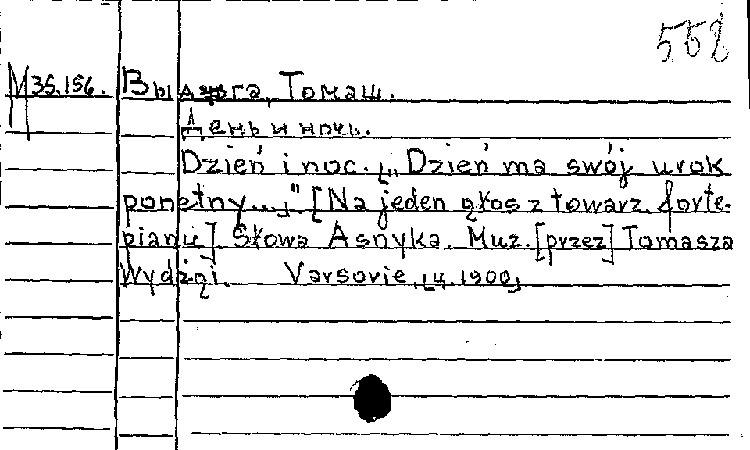 552
М 35.156. Выджга, Томаш.
День и ночь.
Dzień i noc. [„Dzień ma swój urok
ponętny...„" [Na jeden głos z towarz. forte-
pianu]. Słowa Asnyka. Muz. [przez] Tomasza
Wydżgi. Varsovie, [ч. 1900]